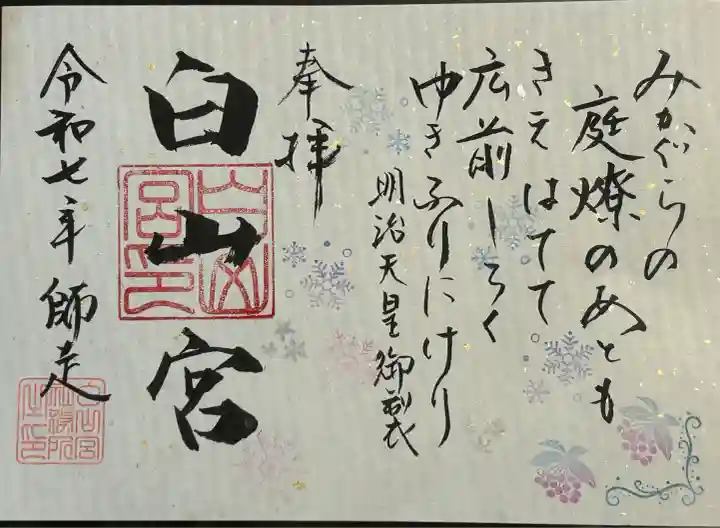 みかぐらの
庭燎のあとも
きえはてて
広前しろく
ゆきふりにけり
明治天皇御製
奉拝
白山宮
白山宮印
令和七年師走
白山宮社務所之印